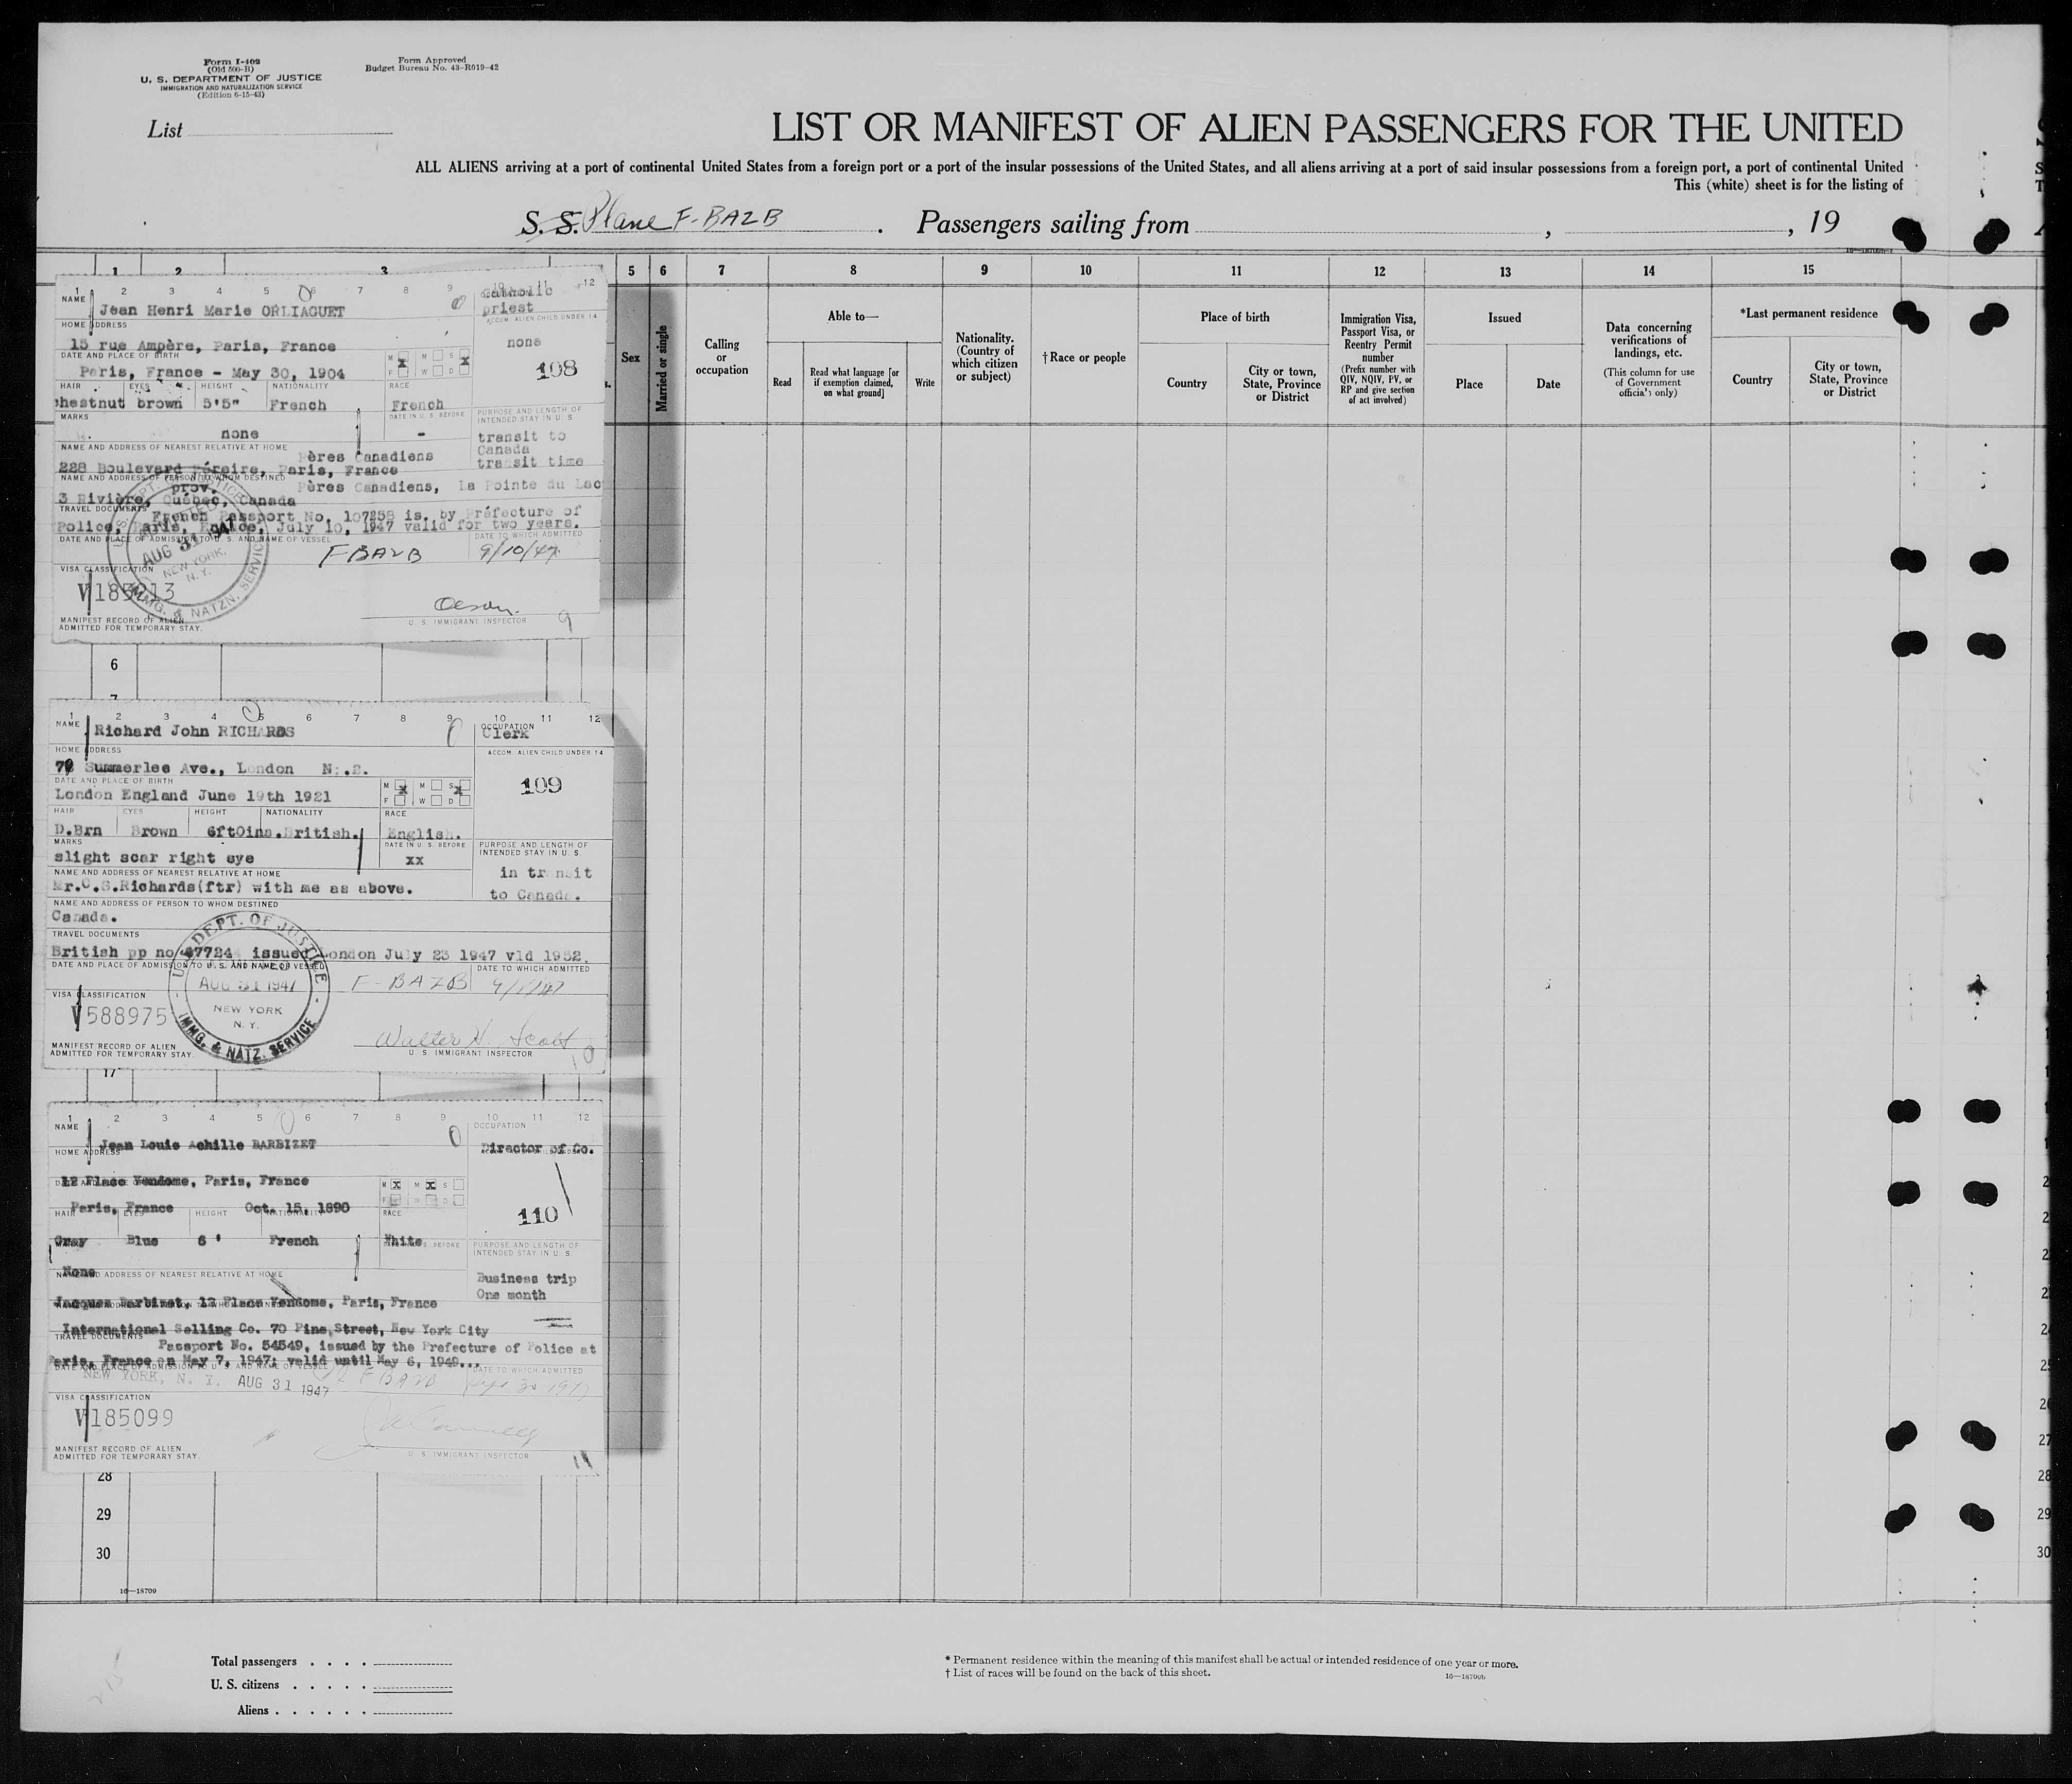 Form I-402
(Old 500-B)
U. S. DEPARTMENT OF JUSTICE
IMMIGRATION AND NATURALIZATION SERVICE
(Edition 6-15-43)
Form Approved
Budget Bureau No. 43-R019-42
List
LIST OR MANIFEST OF ALIEN PASSENGERS FOR THE UNITED
ALL ALIENS arriving at a port of continental United States from a foreign port or a port of the insular possessions of the United States, and all aliens arriving at a port of said insular possessions from a foreign port, a port of continental United
This (white) sheet is for the listing of
S. S. Plane F-BAZB . Passengers sailing from , , 19
1 2 3 5 6 7 8 9 10 11 12 13 14 15
Sex
Married or single
Calling
or
occupation
Able to—
Read
Read what language [or
if exemption claimed,
on what ground]
Write
Nationality.
(Country of
which citizen
or subject)
† Race or people
Place of birth
Country
City or town,
State, Province
or District
Immigration Visa,
Passport Visa, or
Reentry Permit
number
(Prefix number with
QIV, NQIV, PV, or
RP and give section
of act involved)
Issued
Place
Date
Data concerning
verifications of
landings, etc.
(This column for use
of Government
officials only)
*Last permanent residence
Country
City or town,
State, Province
or District
1 2 3 4 5 6 7 8 9 10 11 12
NAME
Jean Henri Marie ORLIAGUET
Catholic
priest
HOME ADDRESS
ACCOM. ALIEN CHILD UNDER 14
15 rue Ampère, Paris, France
none
DATE AND PLACE OF BIRTH
M x M S x
F W D
108
Paris, France - May 30, 1904
HAIR EYES HEIGHT NATIONALITY RACE
chestnut brown 5'5" French French
MARKS
DATE IN U. S. BEFORE
PURPOSE AND LENGTH OF
INTENDED STAY IN U. S.
none -
transit to
Canada
transit time
NAME AND ADDRESS OF NEAREST RELATIVE AT HOME
Pères Canadiens
228 Boulevard Péreire, Paris, France
NAME AND ADDRESS OF PERSON TO WHOM DESTINED
prov. Pères Canadiens, La Pointe du Lac
3 Rivière, Québec, Canada
TRAVEL DOCUMENTS
French Passport No. 107258 is. by Préfecture of
Police, Paris, France, July 10, 1947 valid for two years.
DATE AND PLACE OF ADMISSION TO U. S. AND NAME OF VESSEL
DATE TO WHICH ADMITTED
AUG 31 1947
NEW YORK,
N. Y.
IMMG. & NATZN. SERVICE
FBAZB
9/10/47
VISA CLASSIFICATION
V185213
Olson
MANIFEST RECORD OF ALIEN
ADMITTED FOR TEMPORARY STAY.
U. S. IMMIGRANT INSPECTOR
9
6
7
1 2 3 4 5 6 7 8 9 10 11 12
NAME
OCCUPATION
Richard John RICHARDS
Clerk
HOME ADDRESS
ACCOM. ALIEN CHILD UNDER 14
Summerlee Ave., London N..2.
DATE AND PLACE OF BIRTH
M x M S x
F W D
109
London England June 19th 1921
HAIR EYES HEIGHT NATIONALITY RACE
D.Brn Brown 6ft0ins. British. English.
MARKS
DATE IN U. S. BEFORE
PURPOSE AND LENGTH OF
INTENDED STAY IN U. S.
slight scar right eye xx
in transit
to Canada.
NAME AND ADDRESS OF NEAREST RELATIVE AT HOME
Mr.C.S.Richards(ftr) with me as above.
NAME AND ADDRESS OF PERSON TO WHOM DESTINED
Canada.
TRAVEL DOCUMENTS
British pp no 47724 issued London July 23 1947 vld 1952.
DATE AND PLACE OF ADMISSION TO U. S. AND NAME OF VESSEL
DATE TO WHICH ADMITTED
U. S. DEPT. OF JUSTICE
AUG 31 1947
NEW YORK
N. Y.
IMMG. & NATZ. SERVICE
F-BAZB
VISA CLASSIFICATION
V588975
Walter H. Scott
MANIFEST RECORD OF ALIEN
ADMITTED FOR TEMPORARY STAY.
U. S. IMMIGRANT INSPECTOR
10
17
1 2 3 4 5 6 7 8 9 10 11 12
NAME
OCCUPATION
Jean Louis Achille BARBIZET
Director of Co.
HOME ADDRESS
12 Place Vendome, Paris, France
M x M x S
F W D
Paris, France Oct. 15, 1890
110
HAIR EYES HEIGHT NATIONALITY RACE
Gray Blue 6' French White
PURPOSE AND LENGTH OF
INTENDED STAY IN U. S.
None
NAME AND ADDRESS OF NEAREST RELATIVE AT HOME
Business trip
One month
Jacques Barbizet, 12 Place Vendome, Paris, France
International Selling Co. 70 Pine Street, New York City
TRAVEL DOCUMENTS
Passport No. 54549, issued by the Prefecture of Police at
Paris, France on May 7, 1947; valid until May 6, 1949...
DATE AND PLACE OF ADMISSION TO U. S. AND NAME OF VESSEL
DATE TO WHICH ADMITTED
NEW YORK, N. Y. AUG 31 1947 FBAZB Sept 30 1947
VISA CLASSIFICATION
V185099
MANIFEST RECORD OF ALIEN
ADMITTED FOR TEMPORARY STAY.
U. S. IMMIGRANT INSPECTOR
11
28
29
30
16—18709
Total passengers
U. S. citizens
Aliens
* Permanent residence within the meaning of this manifest shall be actual or intended residence of one year or more.
† List of races will be found on the back of this sheet.
16—18709b
27
28
29
30